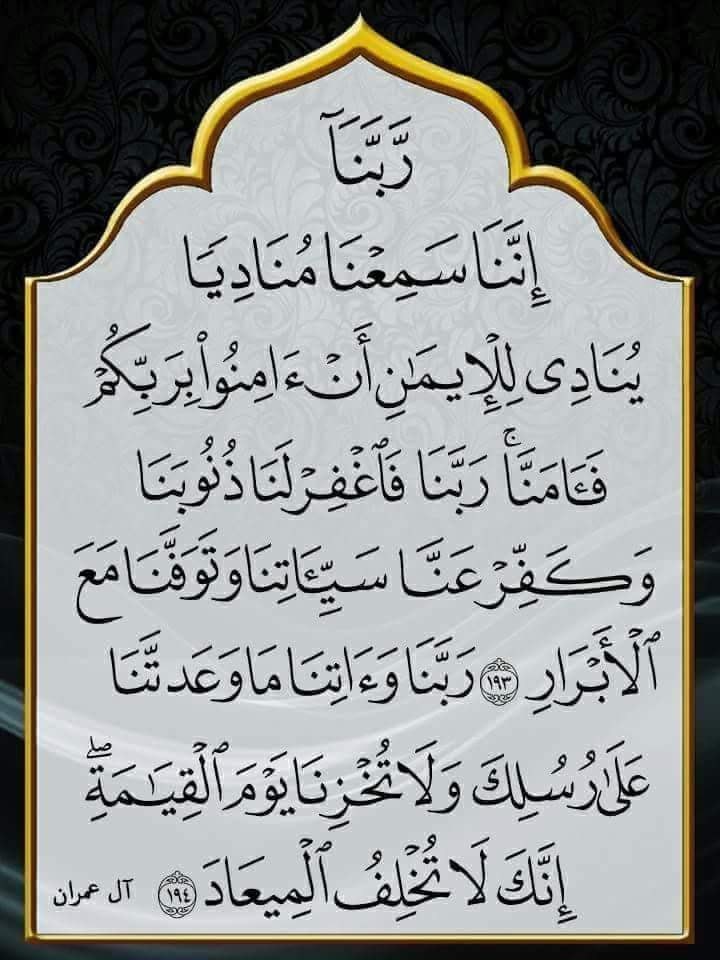 رَّبَّنَآ
إِنَّنَا سَمِعۡنَا مُنَادِيٗا
يُنَادِي لِلۡإِيمَٰنِ أَنۡ ءَامِنُواْ بِرَبِّكُمۡ
فَـَٔامَنَّاۚ رَبَّنَا فَٱغۡفِرۡ لَنَا ذُنُوبَنَا
وَكَفِّرۡ عَنَّا سَيِّـَٔاتِنَا وَتَوَفَّنَا مَعَ
ٱلۡأَبۡرَارِ ١٩٣ رَبَّنَا وَءَاتِنَا مَا وَعَدتَّنَا
عَلَىٰ رُسُلِكَ وَلَا تُخۡزِنَا يَوۡمَ ٱلۡقِيَٰمَةِۖ
إِنَّكَ لَا تُخۡلِفُ ٱلۡمِيعَادَ ١٩٤ آل عمران